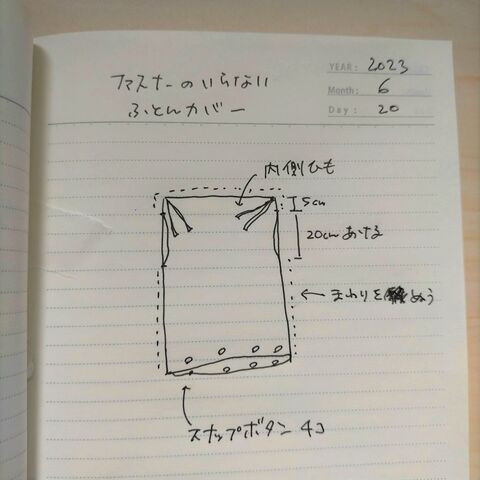 YEAR: 2023
Month: 6
Day: 20
ファスナーのいらない
ふとんカバー
内側ひも
5cm
20cmあける
まわりをぬう
スナップボタン 4コ